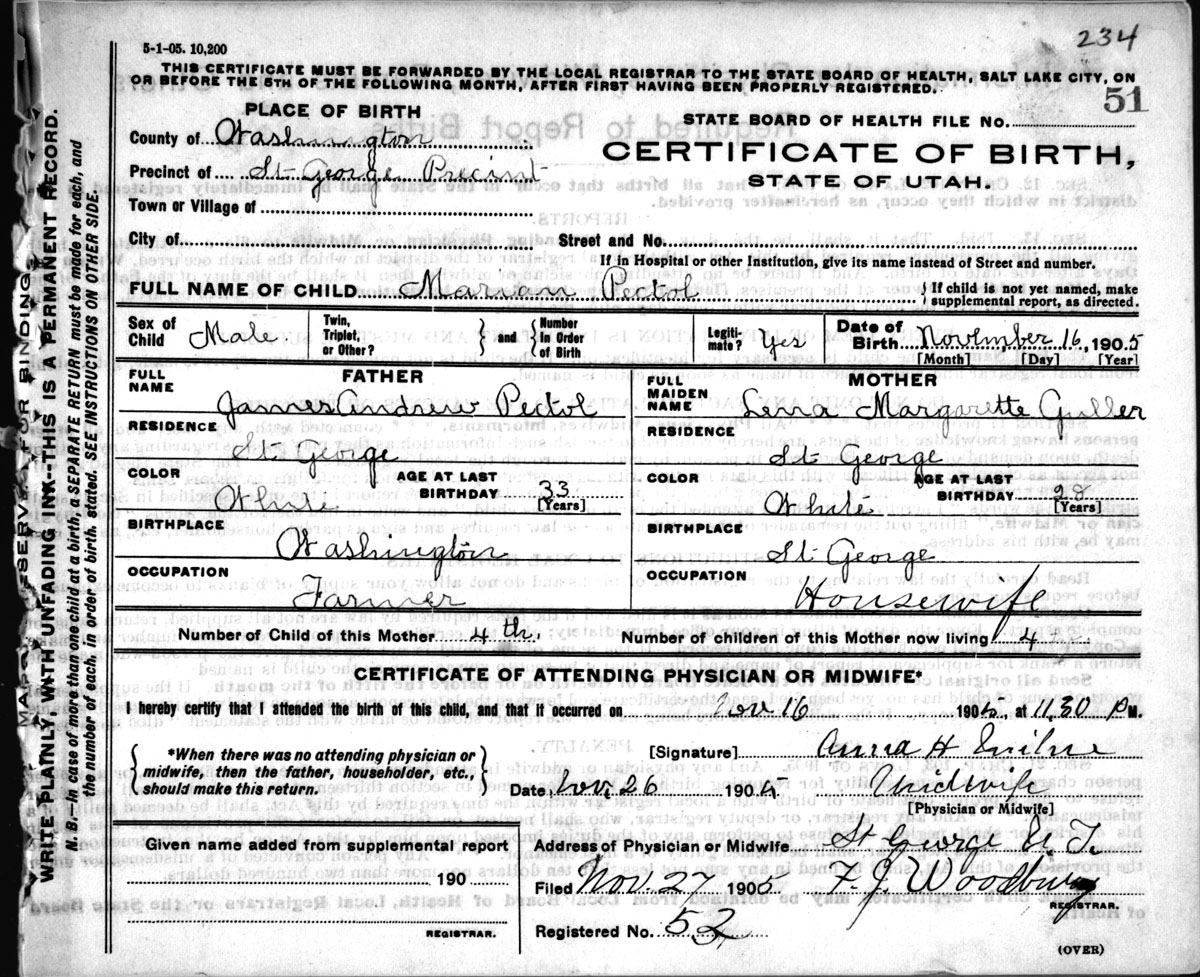 234
5-1-05. 10,200
THIS CERTIFICATE MUST BE FORWARDED BY THE LOCAL REGISTRAR TO THE STATE BOARD OF HEALTH, SALT LAKE CITY, ON
OR BEFORE THE 5TH OF THE FOLLOWING MONTH, AFTER FIRST HAVING BEEN PROPERLY REGISTERED.
51
PLACE OF BIRTH
STATE BOARD OF HEALTH FILE NO.
County of Washington
CERTIFICATE OF BIRTH,
Precinct of St George Precint
STATE OF UTAH.
Town or Village of
City of
Street and No.
If in Hospital or other Institution, give its name instead of Street and number.
FULL NAME OF CHILD Marian Pectol
If child is not yet named, make supplemental report, as directed.
Sex of Child Male
Twin, Triplet, or Other?
and
Number in Order of Birth
Legitimate? Yes
Date of Birth November 16, 1905
[Month] [Day] [Year]
FATHER
FULL NAME James Andrew Pectol
RESIDENCE St George
COLOR White
AGE AT LAST BIRTHDAY 33
[Years]
BIRTHPLACE Washington
OCCUPATION Farmer
MOTHER
FULL MAIDEN NAME Lena Margarette
RESIDENCE St George
COLOR White
AGE AT LAST BIRTHDAY 28
[Years]
BIRTHPLACE St George
OCCUPATION Housewife
Number of Child of this Mother 4th.
Number of children of this Mother now living 4
CERTIFICATE OF ATTENDING PHYSICIAN OR MIDWIFE*
I hereby certify that I attended the birth of this child, and that it occurred on Nov 16 1905, at 11,30 PM.
*When there was no attending physician or
midwife, then the father, householder, etc.,
should make this return.
[Signature] Anna H
Date, Nov, 26 1905. Midwife
[Physician or Midwife]
Given name added from supplemental report
190
REGISTRAR.
Address of Physician or Midwife St George U. T.
Filed Nov. 27 1905 F. J. Woodbury
REGISTRAR.
Registered No. 52
(OVER)
MARGIN RESERVED FOR BINDING
WRITE PLAINLY, WITH UNFADING INK--THIS IS A PERMANENT RECORD.
N. B.--In case of more than one child at a birth, a SEPARATE RETURN must be made for each, and
the number of each, in order of birth, stated. SEE INSTRUCTIONS ON OTHER SIDE.